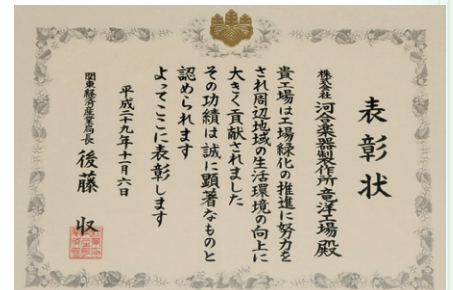 表彰状
株式会社 河合楽器製作所竜洋工場 殿
貴工場は工場緑化の推進に努力を
され周辺地域の生活環境の向上に
大きく貢献されました
その功績は誠に顕著なものと
認められます
よってここに表彰します
平成二十九年十一月六日
関東経済産業局長 後藤 収